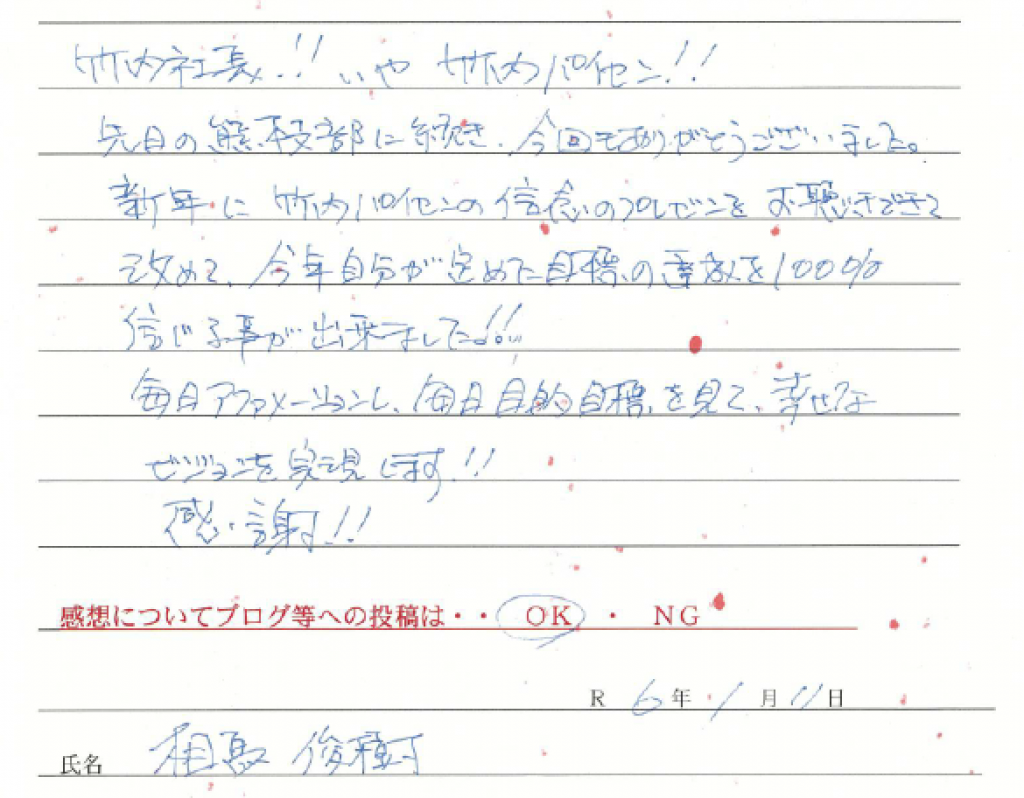 竹内社長!! いや 竹内パイセン!!
先日の熊本支部に続き、今回もありがとうございました。
新年に 竹内パイセンの信念のプレゼンをお聴きできて
改めて、今年自分が定めた目標の達成を100%
信じる事が出来ました!!
毎日アファメーションし、毎日目的目標を見て、幸せな
ビジョンを実現します!!
感・謝!!
感想についてブログ等への投稿は・・ OK ・ NG
R 6年 1月 11日
氏名 相馬 俊樹